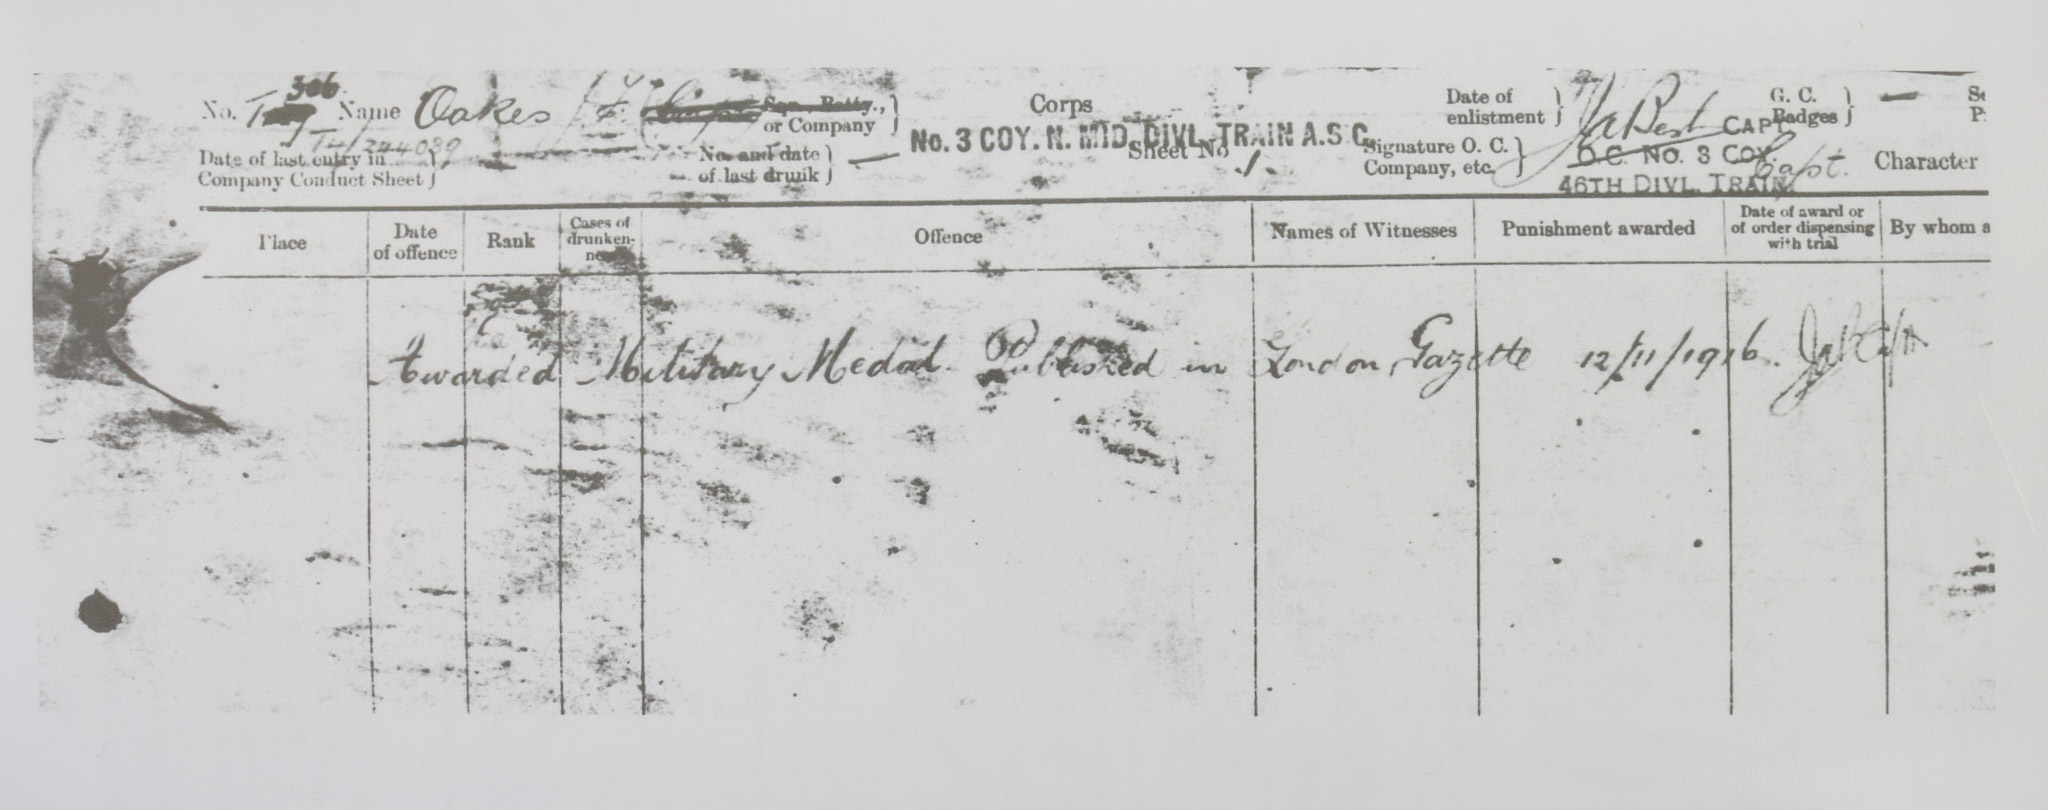 306
No. T Name Oakes F. Sqn., Batty., or Company } Corps Date of enlistment } G. C. Badges } —
T4/244089
No. 3 COY. N. MID. DIVL. TRAIN A.S.C.
Date of last entry in Company Conduct Sheet } No. and date of last drunk } — Sheet No 1. Signature O. C. Company, etc. } J A Best CAPT. Capt. Character
O.C. NO. 3 COY.
46TH DIVL. TRAIN.
Place Date of offence Rank Cases of drunkenness Offence Names of Witnesses Punishment awarded Date of award or of order dispensing with trial By whom a
Awarded Military Medal. Published in London Gazette 12/11/1916.